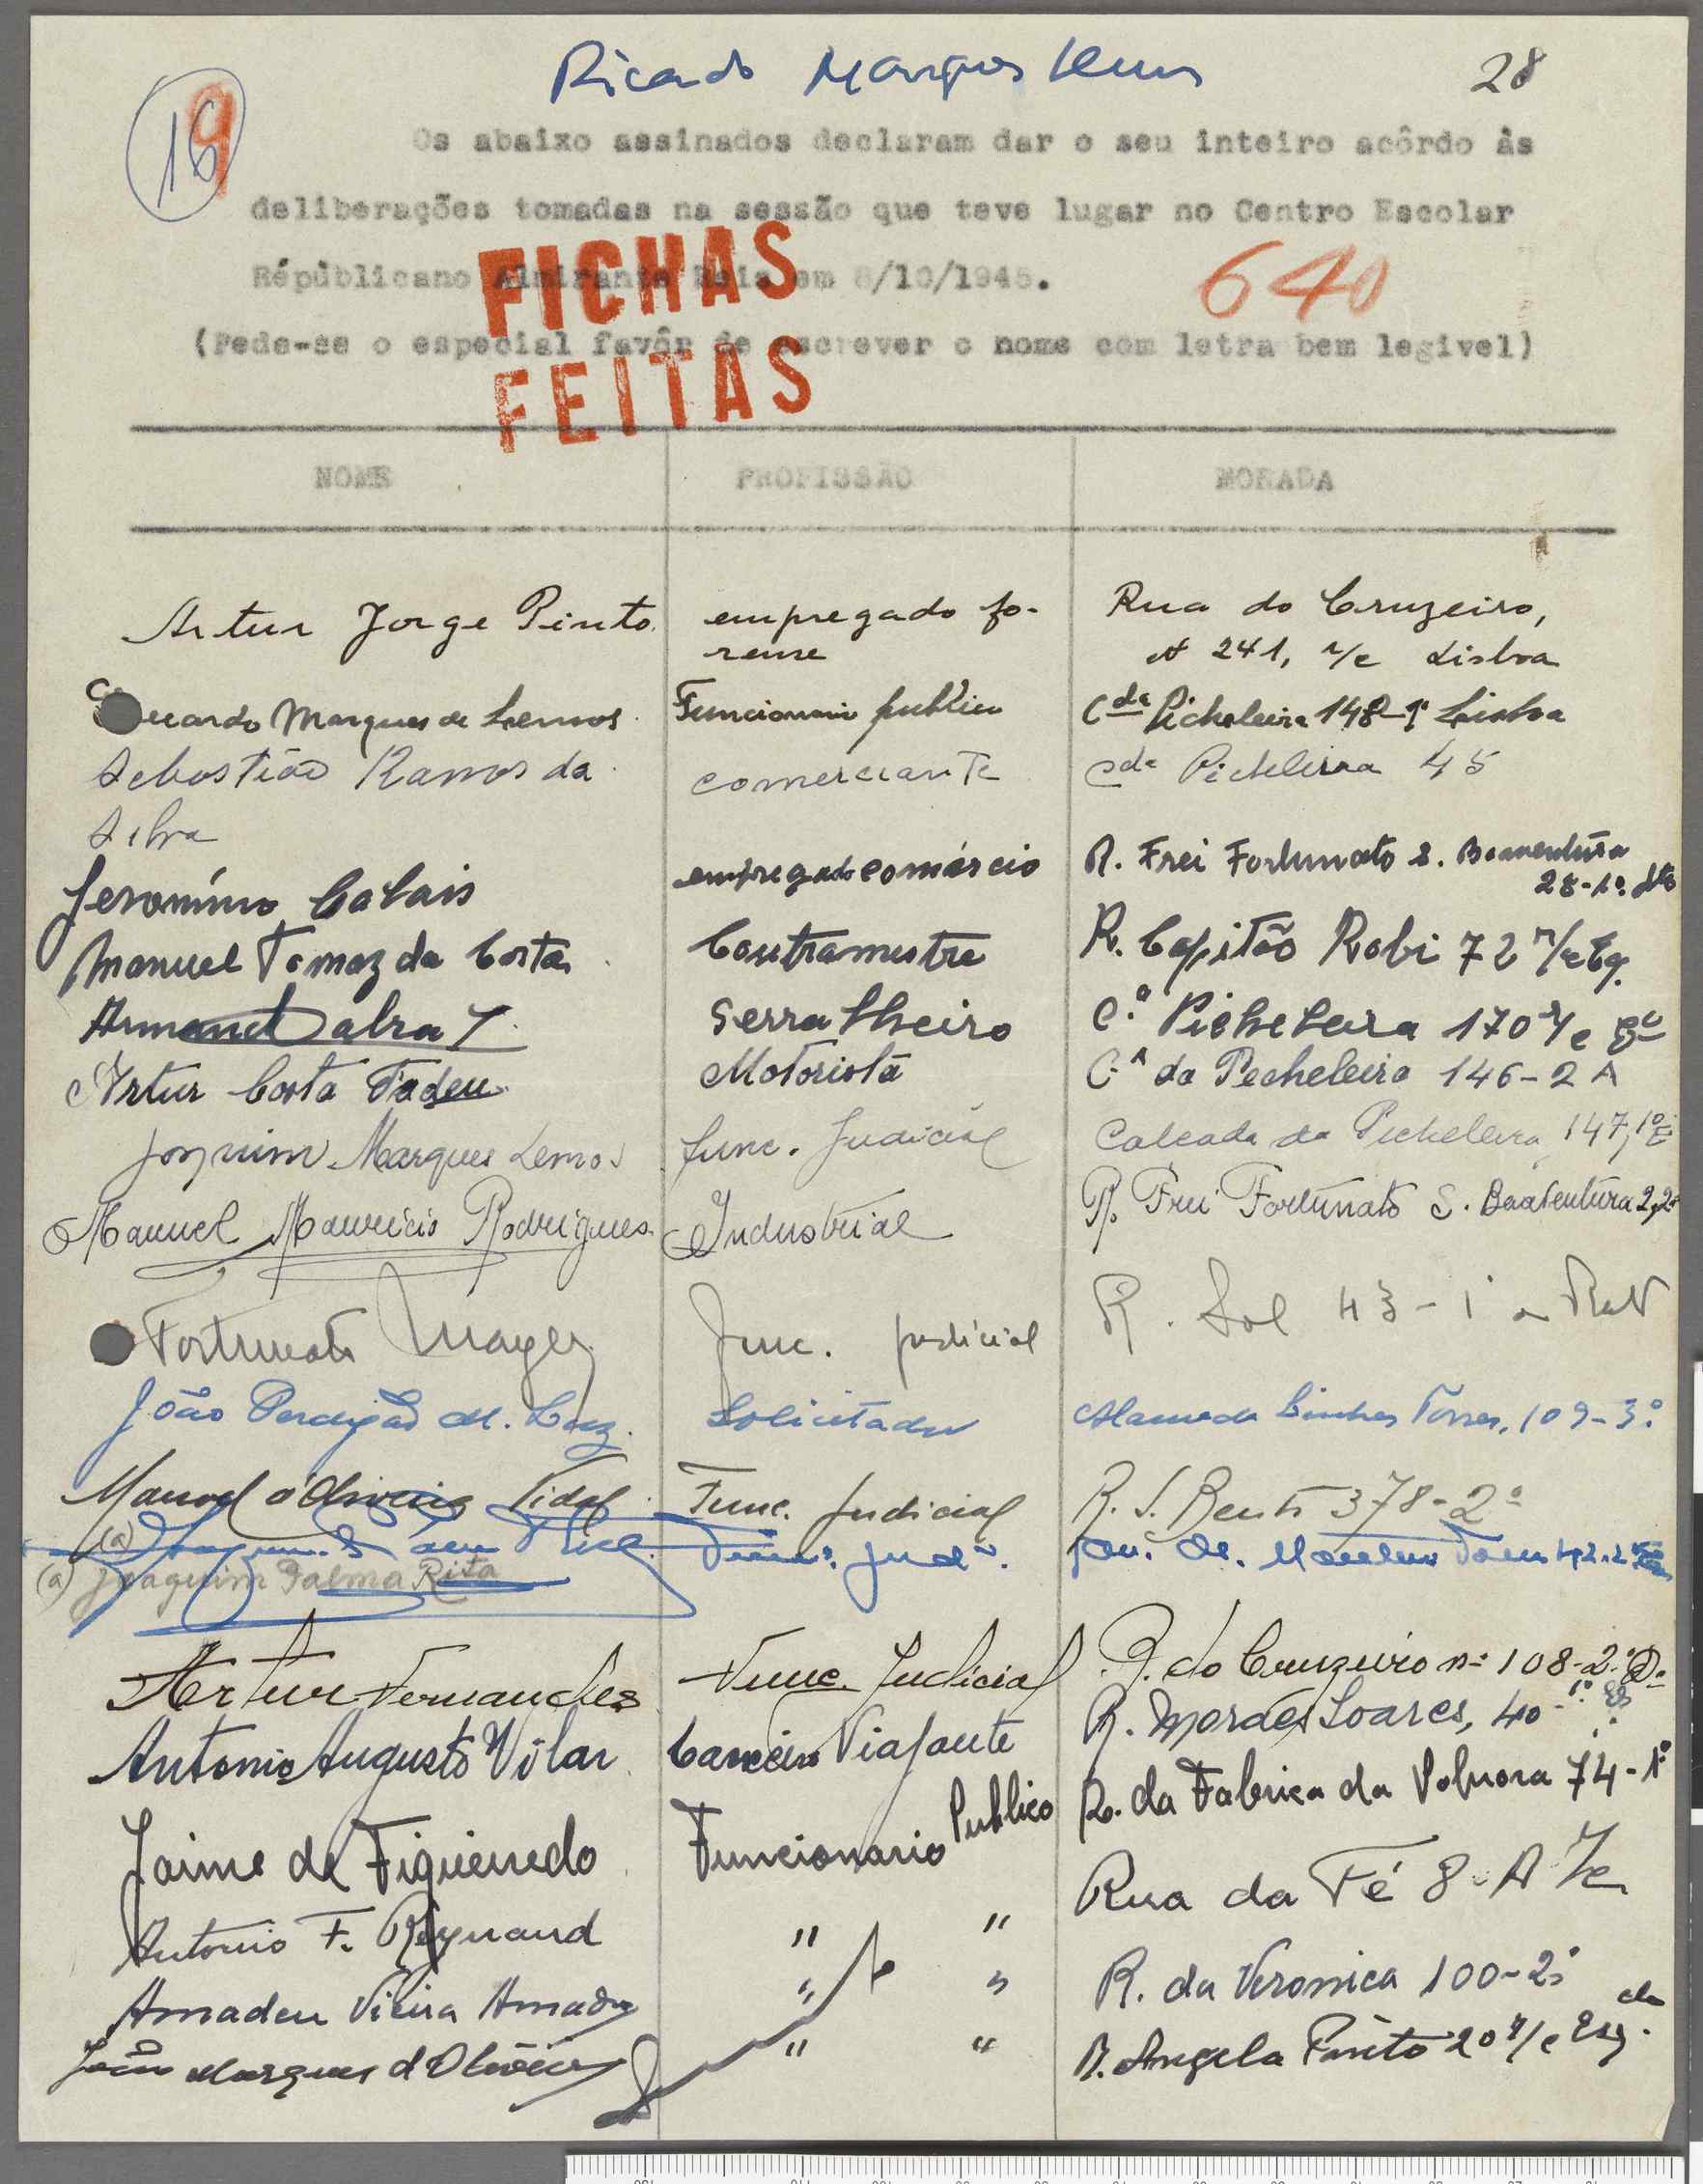 Ricardo Marques Lemos
28
16
9
Os abaixo assinados declaram dar o seu inteiro acôrdo às
deliberações tomadas na sessão que teve lugar no Centro Escolar
Répúblicano Almirante Reis em 8/10/1945.
640
(Pede-se o especial favôr de escrever o nome com letra bem legivel)
FICHAS
FEITAS
NOME PROFISSÃO MORADA
Artur Jorge Pinto empregado fo- Rua do Cruzeiro,
rense 241, r/c Lisboa
Marques de Lemos Funcionario publico Cda Picheleira 148-1º Lisboa
Sebastião Ramos da comerciante Cda Picheleira 45
Silva
Jeronímo Calais empregado comércio R. Frei Fortunato S. Boaventura
28-1º. dto
Manuel Tomaz da Costa Contramestre R. Capitão Robi 72 r/c Eq.
Serralheiro C.ª Picheleira 170 r/c Eº
Artur Costa Tadeu Motorista C.ª da Pecheleira 146-2 A
Joaquim Marques Lemos func. Judicial Calcada da Picheleira 147, 1º E
Manuel Mauricio Rodrigues Industrial R. Frei Fortunato S. Boaventura 2, 2º
Fortunato Func. judicial R. Sol 43-1º a Rato
João Perdigão M. Solicitador Alameda Linhas Torres, 109-3.º
Manuel d'Oliveira Vidal Func. Judicial R. S. Bento 378-2º
(a) Func. Jud.
(a) Joaquim Palma Rita
Artur Fernandes Func. Judicial R. do Cruzeiro nº 108-2.º D.
R. Moraes Soares, 40-1º
Antonio Augusto Vilar Caixeiro Viajante R. da Fabrica da Polvora 74-1º
Jaime de Figueiredo Funcionario Publico Rua da Fé 8-A
Antonio F. Reynaud " " R. da Veronica 100-2º
Amadeu Vieira " "
João Marques d'Oliveira " " R. Angela Pinto 20 r/c Esq.da